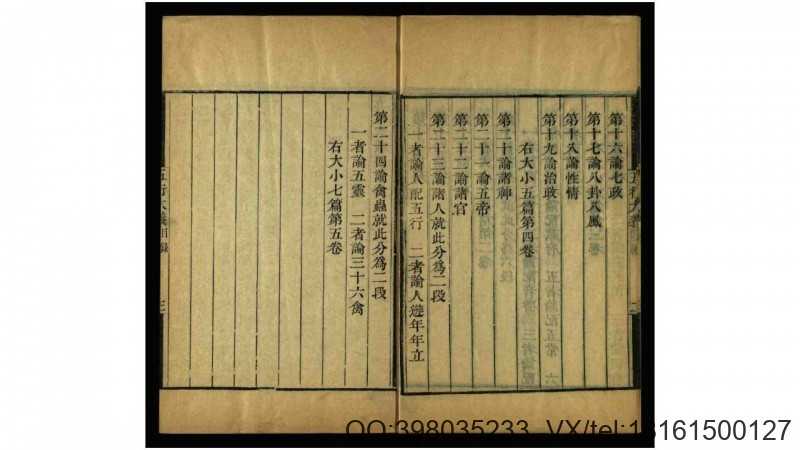 第十六論七政
第十七論八卦八風
第十八論性情
第十九論治政
右大小五篇第四卷
第二十論諸神
第二十一論五帝
第二十二論諸官
第二十三論諸人就此分爲二段
一者論人配五行　二者論人遊年年立
第二十四論禽蟲就此分爲二段
一者論五靈　二者論三十六禽
右大小七篇第五卷
五行大義目錄
三
QQ:398035233 VX/tel:18161500127